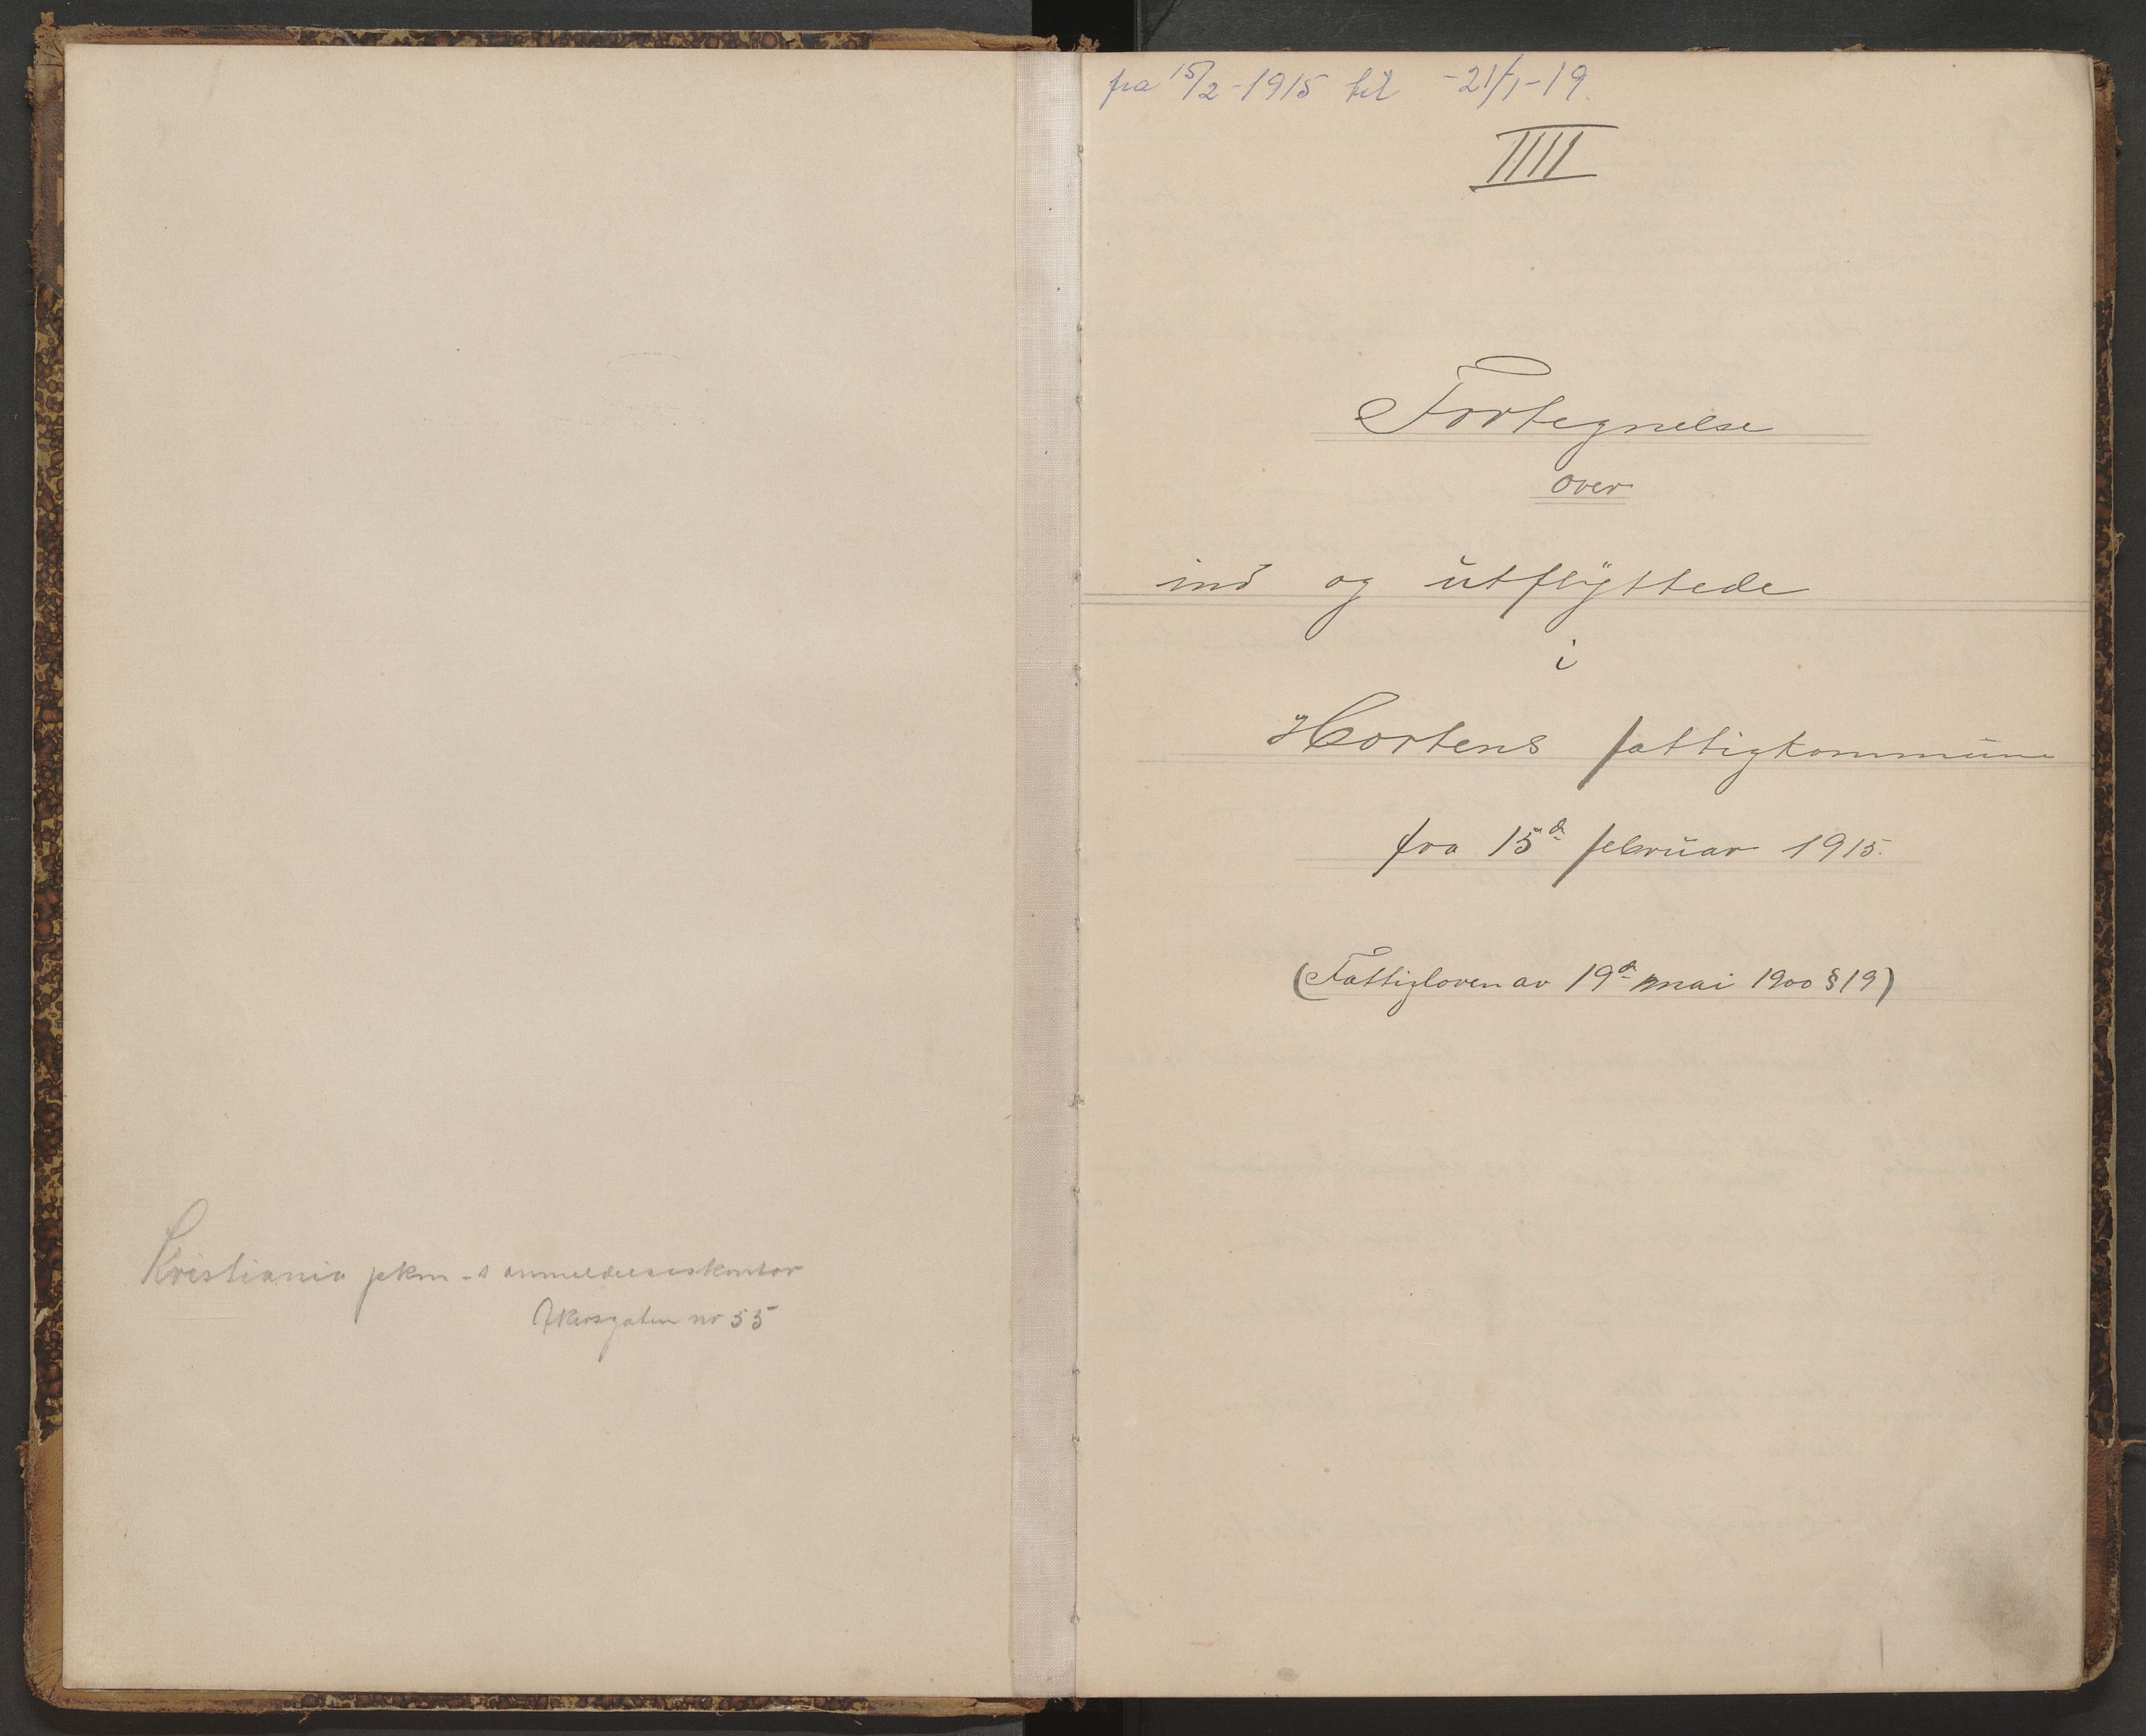 Kristiania pkm-s anmeldelseskontor
Akersgaten nr 55
fra 15/2-1915 til -21/1-19.
IIII
Fortegnelse
over
ind og utflyttede
i
Hortens fattigkommune
fra 15de februar 1915.
(Fattigloven av 19de mai 1900 § 19)